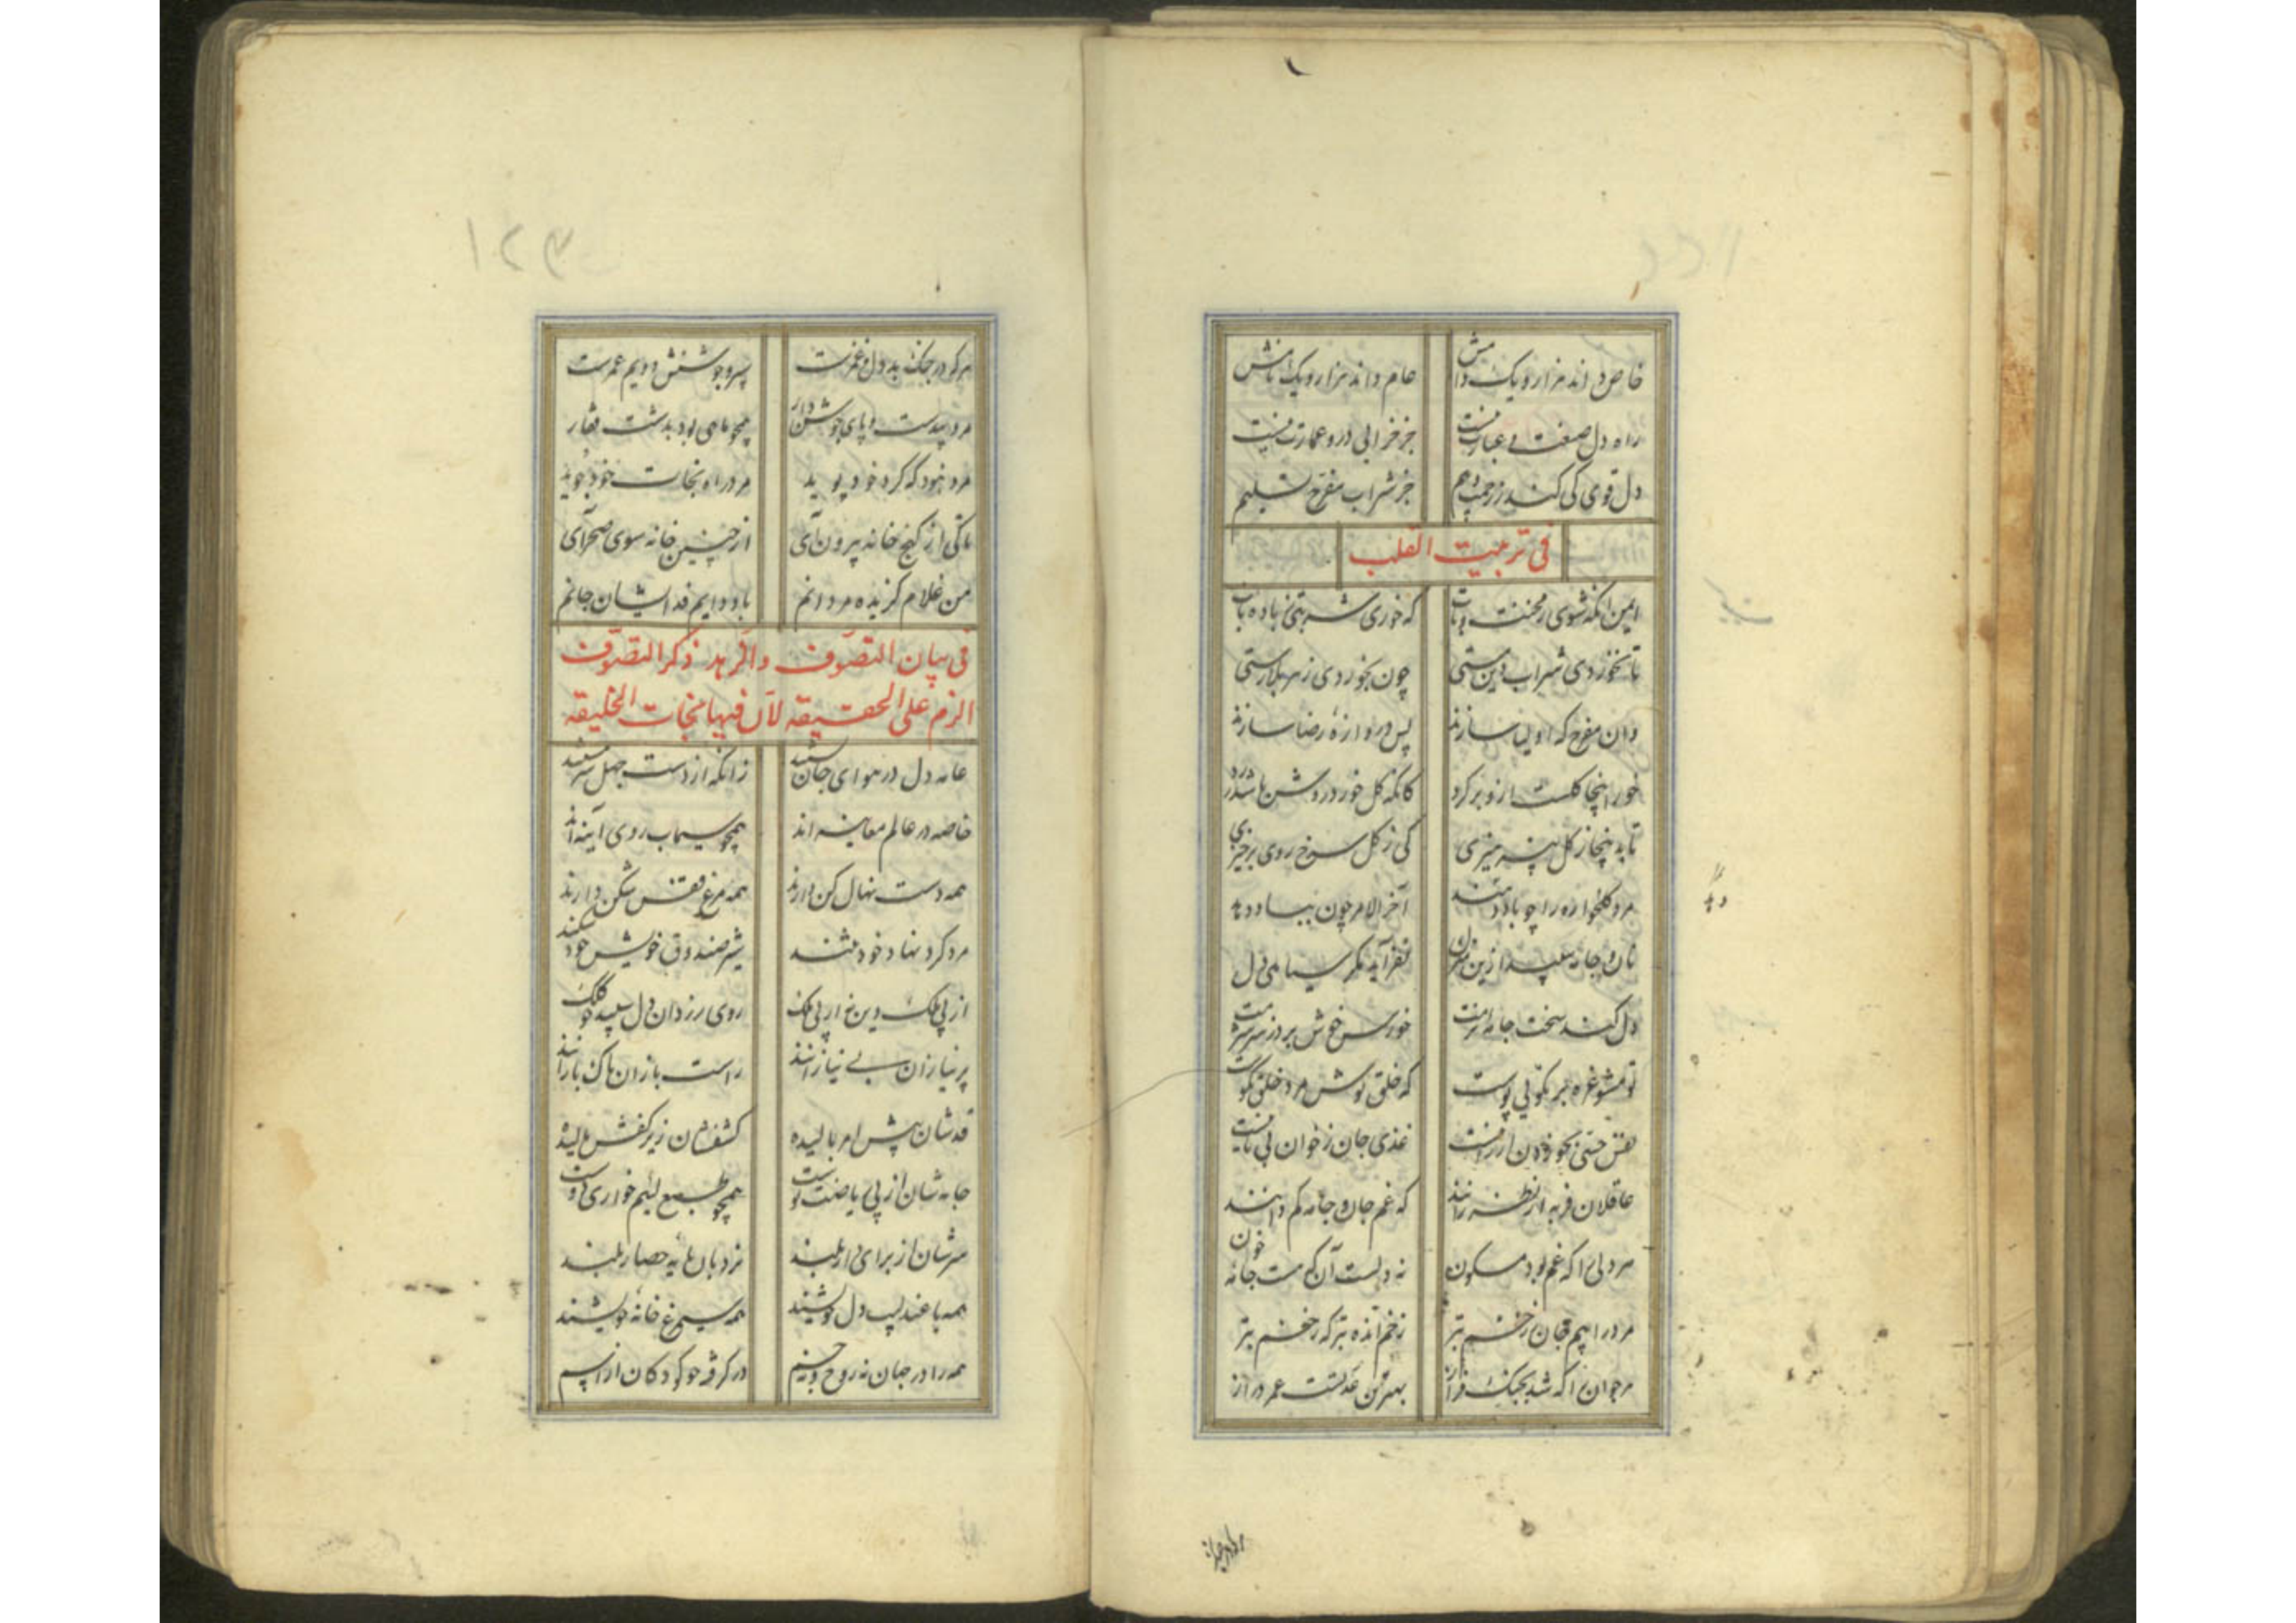 خاص داند هزار و یک دامش عام داند هزار و یک نامش
راه دل صفت بی عبارت نیست جز خرابی درو عمارت نیست
دل قوی کی کند ز زحمت و هم جز شراب مفرح تسلیم
فی تربیت القلب
ایمن آنگه شوی ز محنت که خوری شربتی باده ناب
تا نخوردی شراب دین مستی چون بخوردی زهر بلا رستی
وان مفرح که اولیا سازند پس دروازه رضا سازند
خور اینجا گلست ازو برگرد کانکه گل خورد روشن باشد درد
تا بدینجا ز گل نپرهیزی کی ز گل سرخ روی برخیزی
مرد گلخواره را چو باد آخر الامر چون بباد دهد
نان و جامه سپید ازین منزل نفزاید مگر سیاهی دل
دل کند سخت جامه نرمت خورش خوش برد ز سر شرمت
تو مشو غره بر نکویی پوست که خلق پوش مرد خلق نکوست
نفس حسی بخوردن ارزانیست غذی جان ز خوان بی نانیست
عاقلان فربه از نظر زانند که غم جان و جامه کم دانند
مر دلی را که غم بود مسکون نه دلست آن که هست جانه خون
مرد را بیم جان ز خشم بتر زخم اندۀ بتر که زخم بتر
مر جوان را که شد بجنگ فراز بهترین عدتست عمر دراز
مر او در جهان
۱۲۳
هر که در جنگ بد دل و غمرست پس رو جوشنش و دیم عمرست
مرد بیدست و پای جوشن‌دار همچو ماهی بود بدشت قفار
مرد نبود که گرد خود پوید مرد راه نجات خود جوید
تا کی از کنج خانه بیرون آی از چنین خانه سوی صحرا آی
من غلام گزیده مردانم باد دایم فدایشان جانم
فی بیان التصوف والزهد ذکر التصوف
الزم علی الحقیقه لان فیها نجات الخلیقه
عامه دل در هوای جان بستند زانکه از دست جهل سرمستند
خاصه در عالم معاینه اند همچو سیماب روی آینه اند
همه دست نهال کن دارند همه مرغ قفس شکن دارند
مرد گرد نهاد خود نتنند شیر صندوق خویش خود شکند
از پی ملک دین نه از پی ملک روی زردان دل سپید چو کلک
پر نیازان بی نیازانند راست بازان پاک بازانند
قدشان پیش امر بالیده کتفشان زیر کفش مالیده
جامه شان از پی ریاضت پوست همچو طبع لئیم خواری دوست
سرشان از برای دار بلند نردبان پایه حصار بلند
همه با عندلیب دل خویشند همه سیمرغ خانه خویشند
همه را در جهان نه روح و نه جسم در گرو چو کودکان از اسم